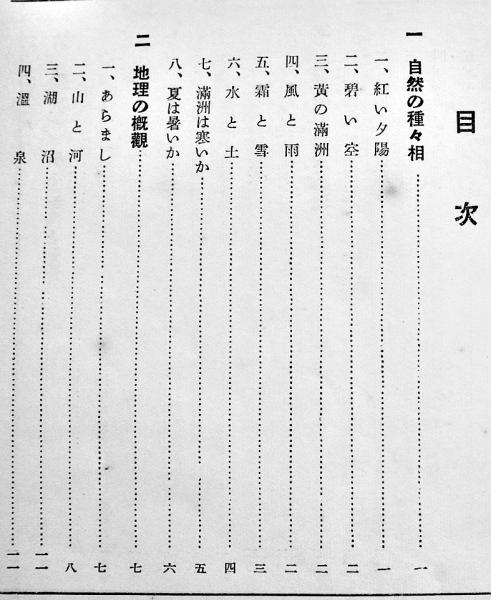 目次
一 自然の種々相……一
一、紅い夕陽……一
二、碧い空……二
三、黃の滿洲……二
四、風と雨……二
五、霜と雪……三
六、水と土……四
七、滿洲は寒いか……五
八、夏は暑いか……六
二 地理の槪觀……七
一、あらまし……七
二、山と河……八
三、湖沼……一一
四、溫泉……一一